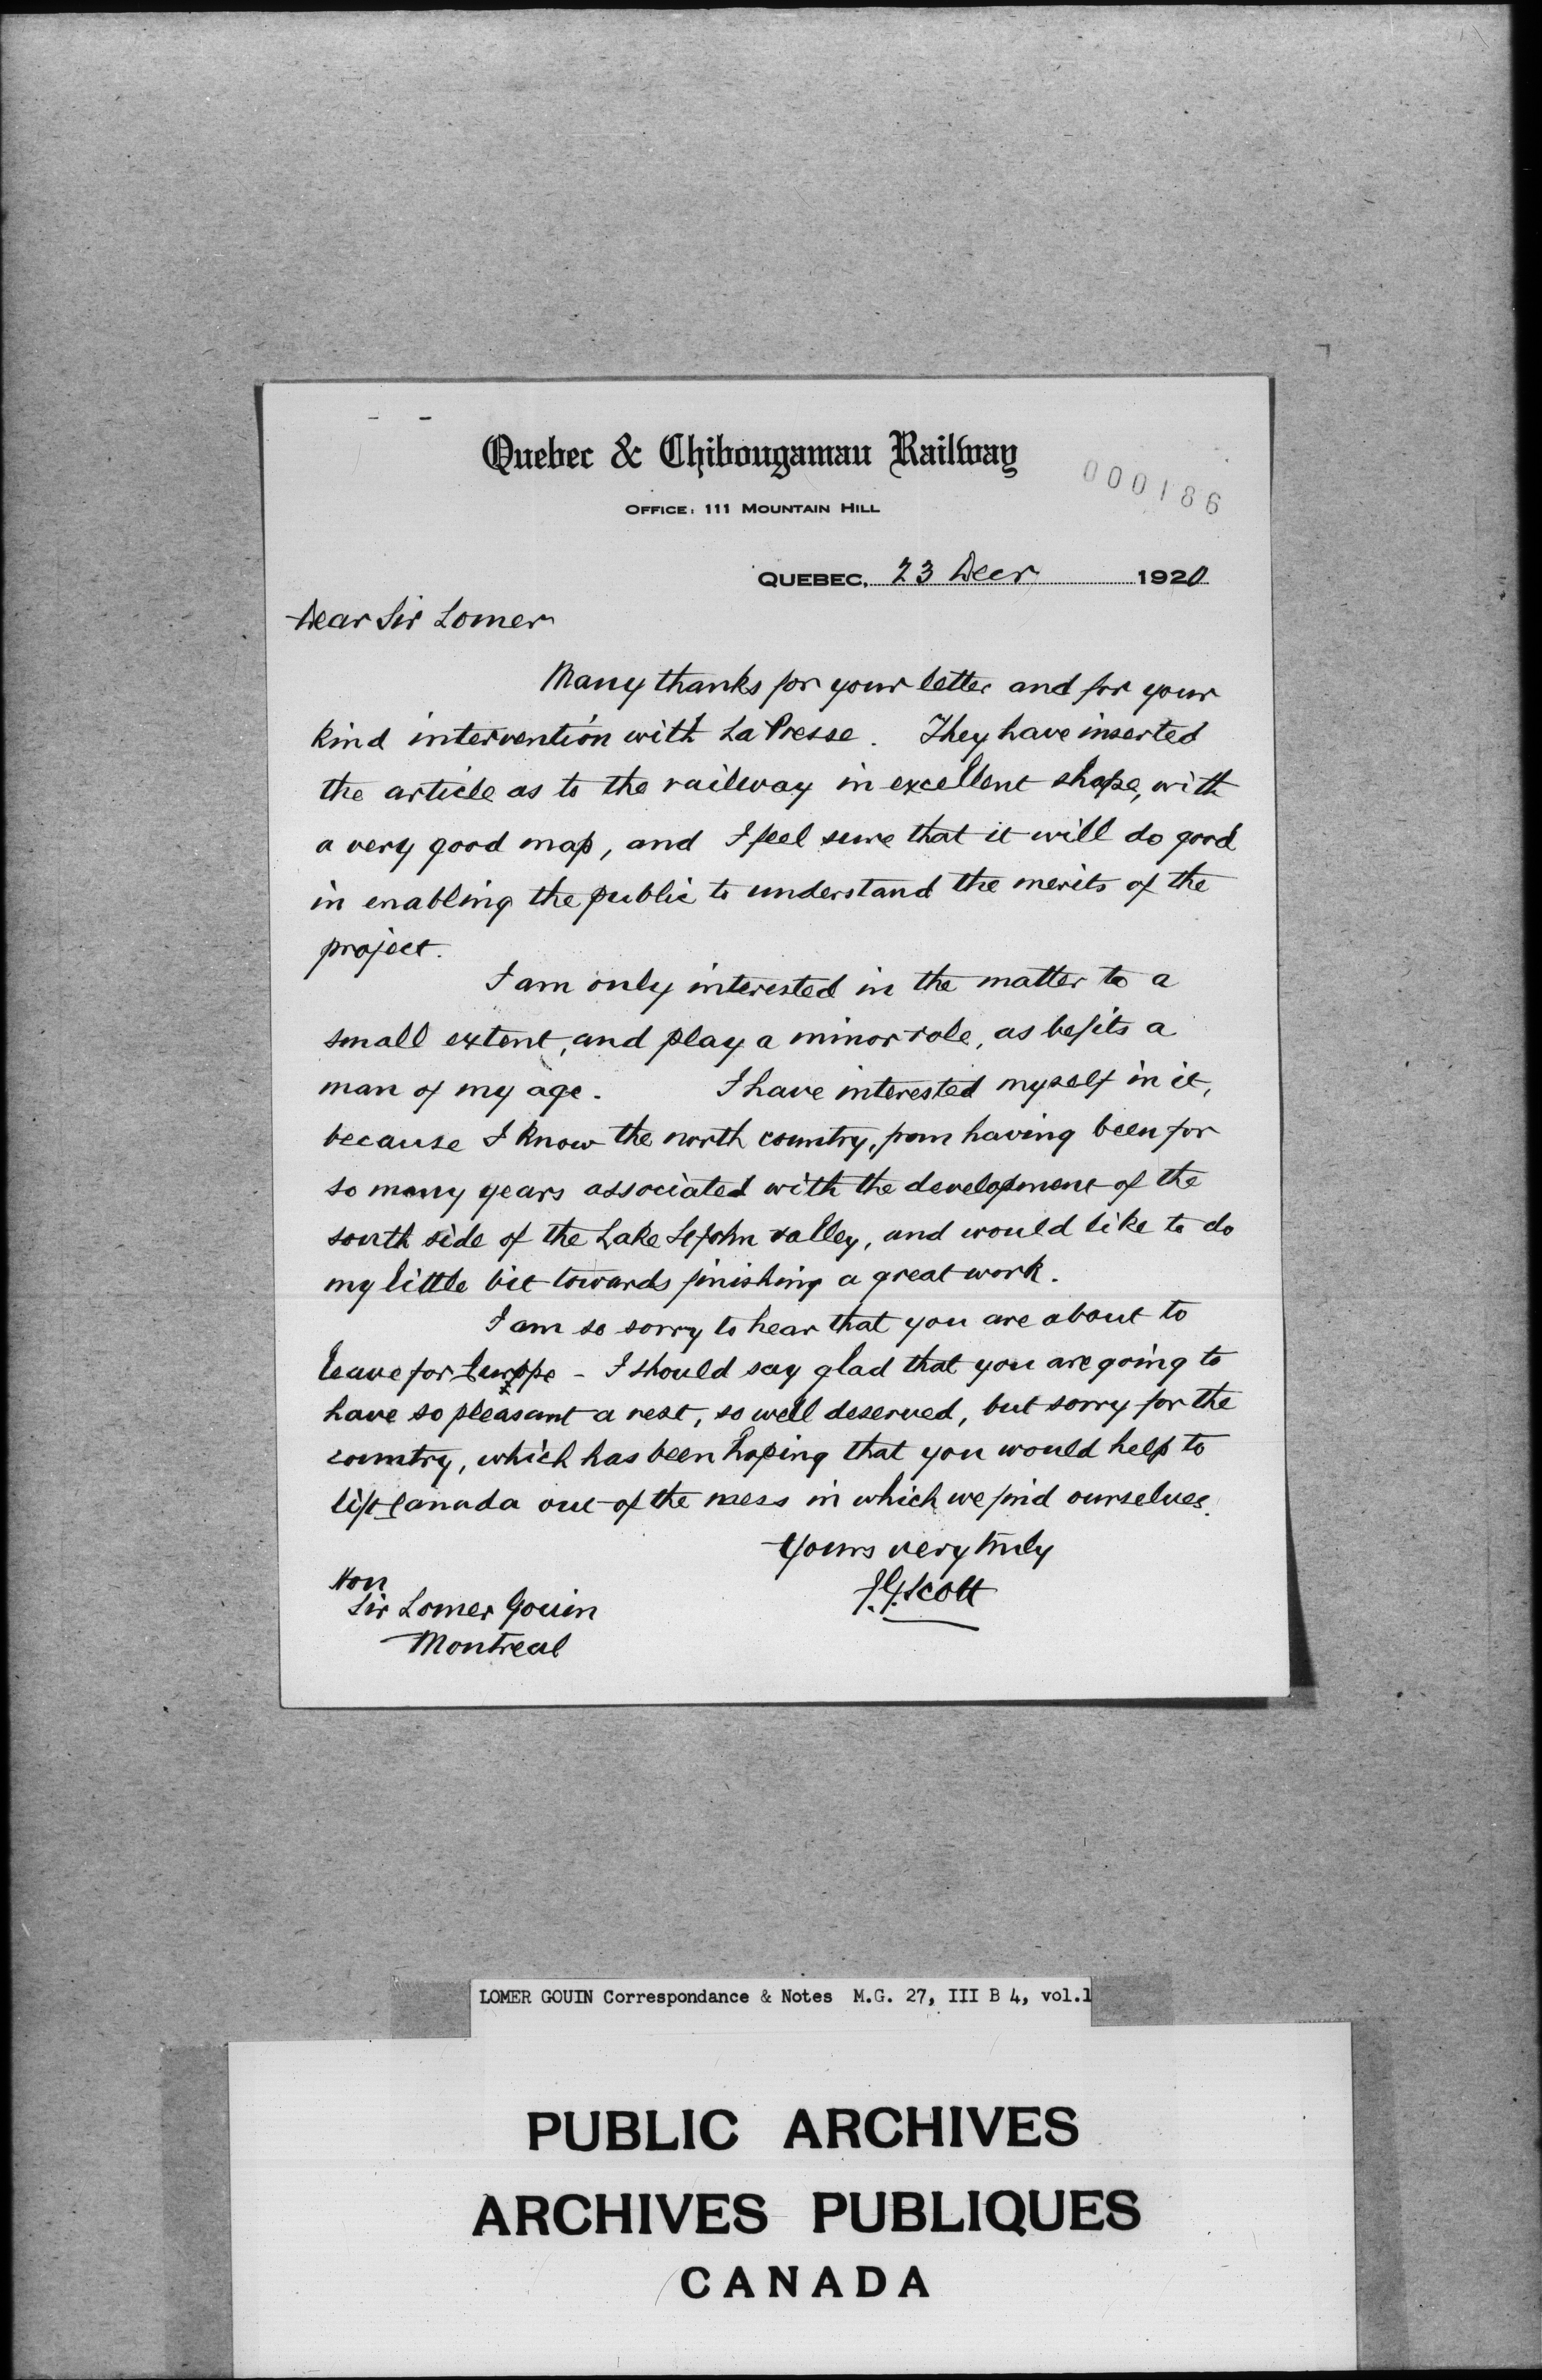 Quebec & Chibougamau Railway
000186
OFFICE: 111 MOUNTAIN HILL
QUEBEC, 23 Decr 1920
Dear Sir Lomer
Many thanks for your letter and for your
kind intervention with La Presse. They have inserted
the article as to the railway in excellent shape, with
a very good map, and I feel sure that it will do good
in enabling the public to understand the merits of the
project.
I am only interested in the matter to a
small extent, and play a minor role, as befits a
man of my age. I have interested myself in it,
because I know the north country, from having been for
so many years associated with the development of the
south side of the Lake St John valley, and would like to do
my little bit towards finishing a great work.
I am so sorry to hear that you are about to
leave for Europe - I should say glad that you are going to
have so pleasant a rest, so well deserved, but sorry for the
country, which has been hoping that you would help to
lift Canada out of the mess in which we find ourselves.
Yours very truly
J.G. Scott
Hon
Sir Lomer Gouin
Montreal
LOMER GOUIN Correspondance & Notes M.G. 27, III B 4, vol.1
PUBLIC ARCHIVES
ARCHIVES PUBLIQUES
CANADA